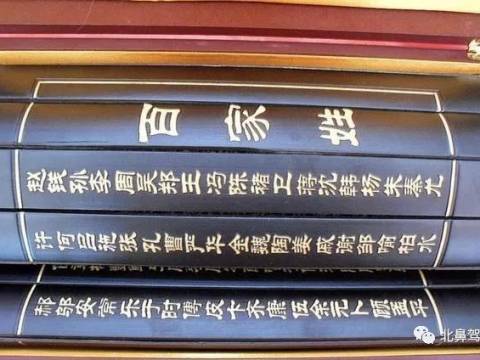 百家姓
赵钱孙李周吴郑王冯陈褚卫蒋沈韩杨朱秦尤
许何吕施张孔曹严华金魏陶姜戚谢邹喻柏水
郝邬安常乐于时傅皮卞齐康伍余元卜顾孟平
北鼻驾